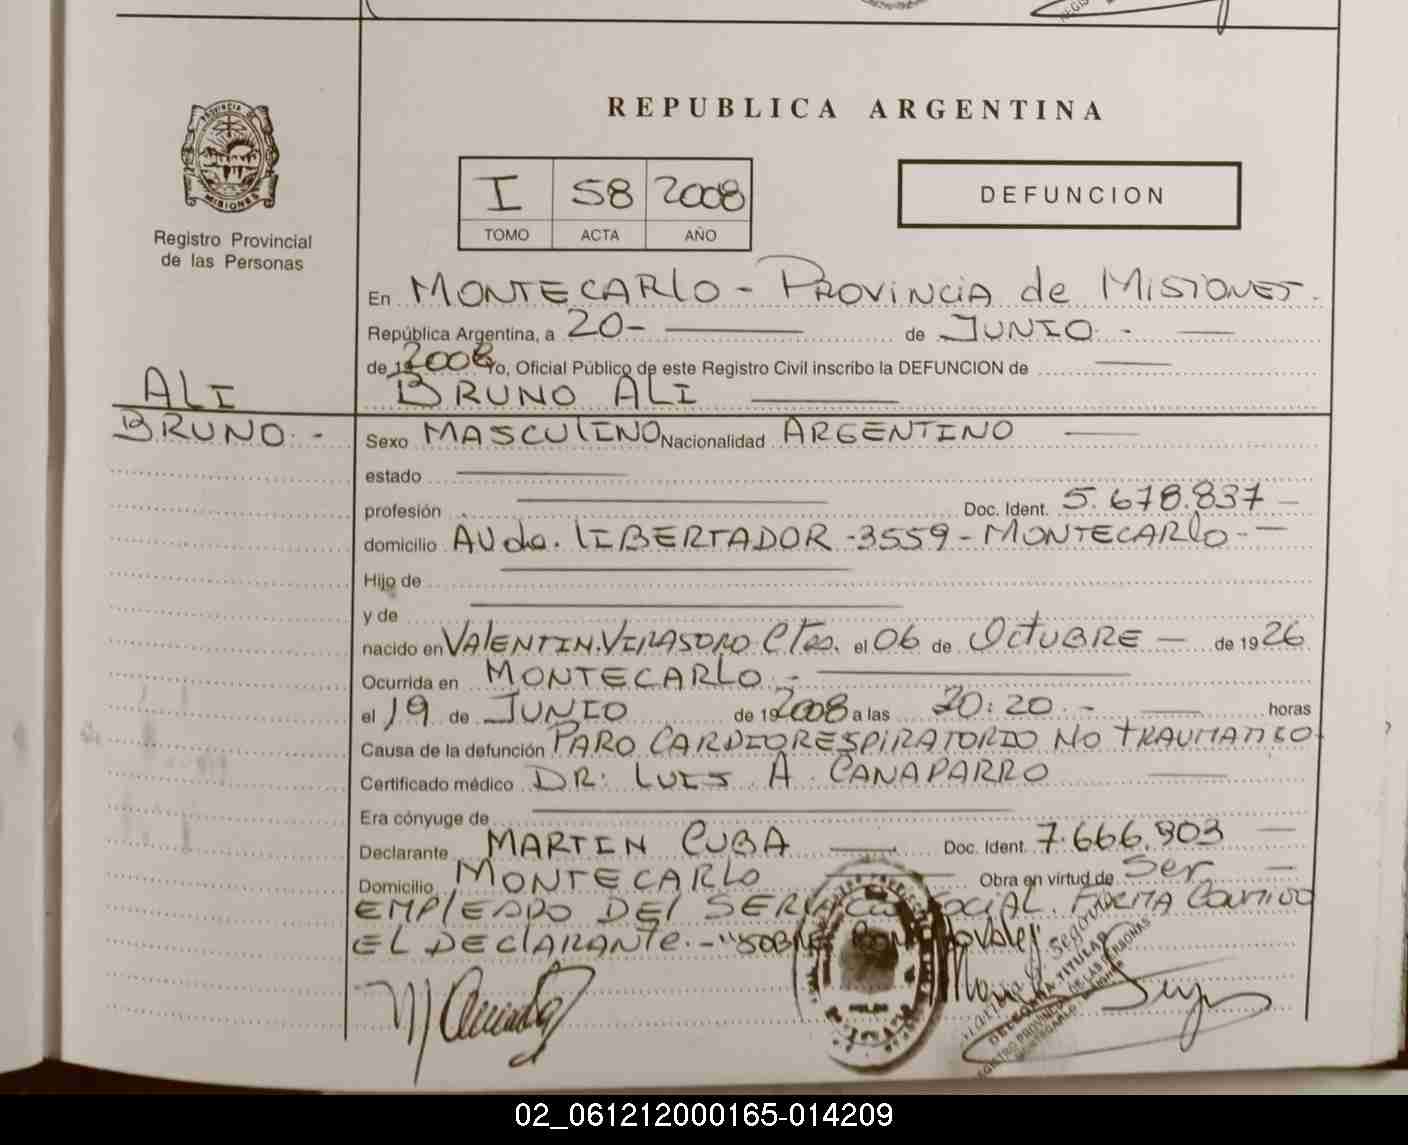 PROVINCIA DE
MISIONES
Registro Provincial
de las Personas
REPUBLICA ARGENTINA
I 58 2008
TOMO ACTA AÑO
DEFUNCION
En MONTECARLO - PROVINCIA de MISIONES.
República Argentina, a 20- de JUNIO.-
de 2008 Yo, Oficial Público de este Registro Civil inscribo la DEFUNCION de
BRUNO ALI
ALI
BRUNO.-
Sexo MASCULINO Nacionalidad ARGENTINO
estado
profesión Doc. Ident. 5.678.837 -
domicilio AVda. LIBERTADOR -3559 - MONTECARLO - -
Hijo de
y de
nacido en VALENTIN.VIRASORO Ctes. el 06 de OCTUBRE - de 1926
Ocurrida en MONTECARLO.-
el 19 de JUNIO de 192008 a las 20:20.- horas
Causa de la defunción PARO CARDIORESPIRATORIO NO TRAUMATICO
Certificado médico DR: LUIS A. CANAPARRO
Era cónyuge de
Declarante MARTIN CUBA Doc. Ident. 7.666.903 -
Domicilio MONTECARLO Obra en virtud de Ser -
EMPLEADO DEL SERVICIO SOCIAL. FIRMA CONMIGO
EL DECLARANTE.-"SOBRE
DELEGADA TITULAR
02_061212000165-014209